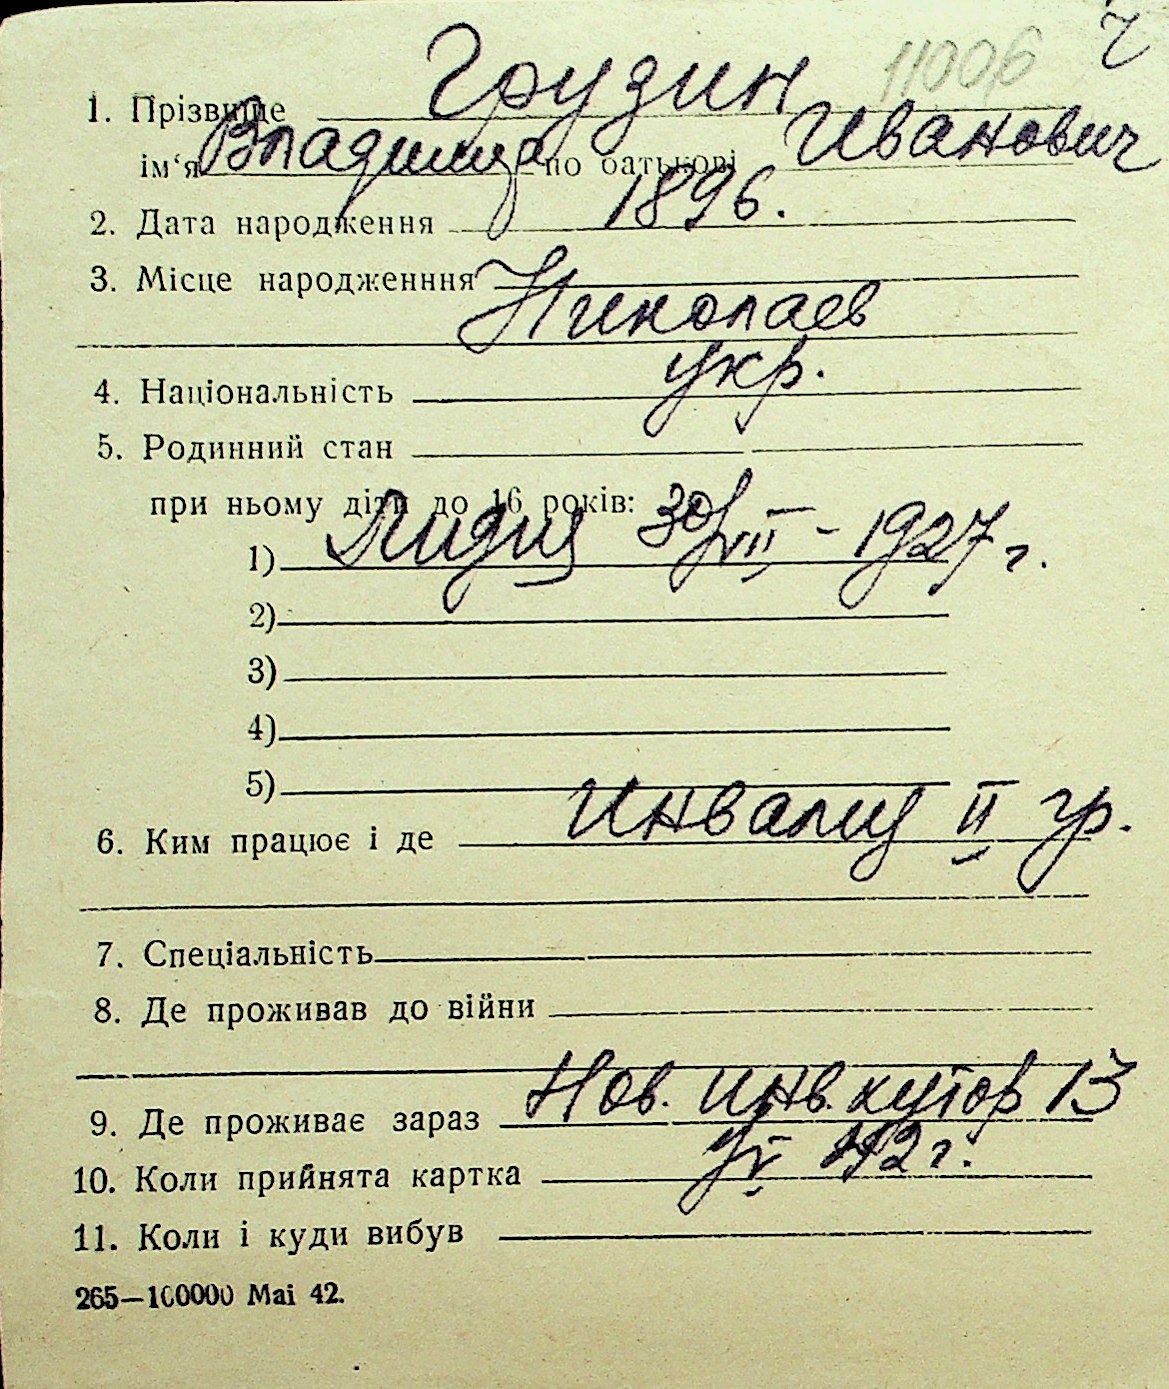 11006 г
1. Прізвище Грузин
ім‘я Владимир по батькові Иванович
2. Дата народження 1896.
3. Місце народженння Николаев
4. Національність укр.
5. Родинний стан
при ньому діти до 16 років:
1) Лидия 30/VII - 1927 г.
2)
3)
4)
5)
6. Ким працює і де Инвалид II гр.
7. Спеціальність
8. Де проживав до війни
9. Де проживає зараз Нов. Инв. хутор 13
10. Коли прийнята картка 42 г.
11. Коли і куди вибув
265—100000 Mai 42.